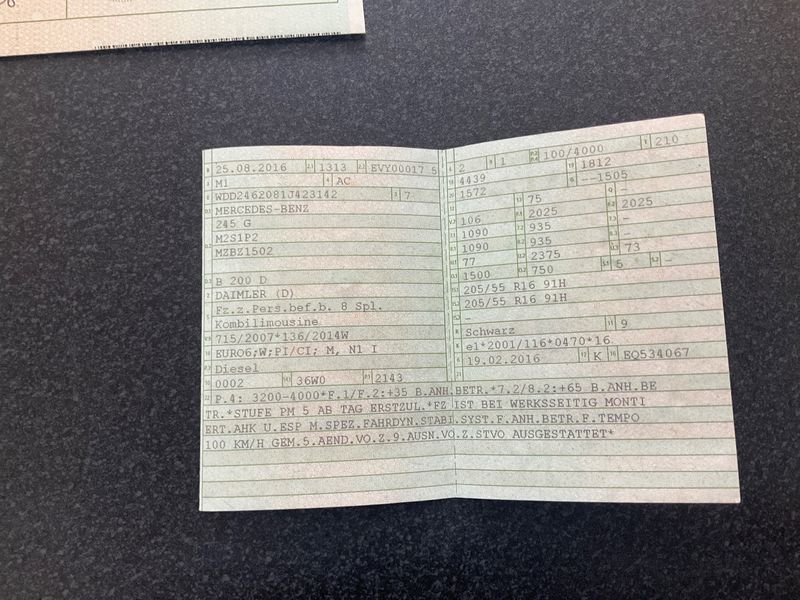 25.08.2016 1313 EVY00017 5
M1 AC
WDD2462081J423142 7
MERCEDES-BENZ
245 G
M2S1P2
MZBZ1502
B 200 D
DAIMLER (D)
Fz.z.Pers.bef.b. 8 Spl.
Kombilimousine
715/2007*136/2014W
EURO6;W;PI/CI; M, N1 I
Diesel
0002 36W0 2143
2 1 100/4000 210
4439 1812
1572 --1505
75 -
106 2025 2025
1090 935 -
1090 935 -
77 2375 73
1500 750 5 -
205/55 R16 91H
205/55 R16 91H
-
Schwarz 9
e1*2001/116*0470*16
19.02.2016 K EQ534067
P.4: 3200-4000*F.1/F.2:+35 B.ANH.BETR.*7.2/8.2:+65 B.ANH.BE
TR.*STUFE PM 5 AB TAG ERSTZUL.*FZ IST BEI WERKSSEITIG MONTI
ERT.AHK U.ESP M.SPEZ.FAHRDYN.STABI.SYST.F.ANH.BETR.F.TEMPO
100 KM/H GEM.5.AEND.VO.Z.9.AUSN.VO.Z.STVO AUSGESTATTET*